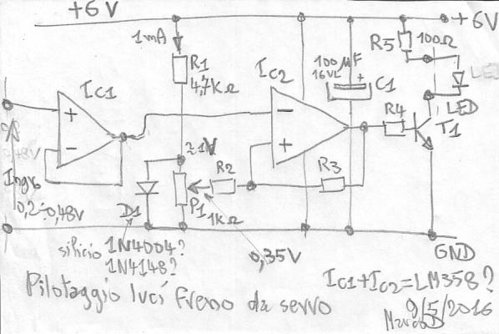 +6V
+6V
1mA
R1
4,7kΩ
100µF
16VL
C1
R5
100Ω
LED
LED
IC1
IC2
+
-
-
+
R4
T1
≈1V
R2
R3
Ingr.
0,2÷0,48V
D1
P1
1kΩ
0,35V
silicio 1N4004?
1N4148?
GND
IC1+IC2=LM358?
Pilotaggio luci freno da servo
9/5/2016